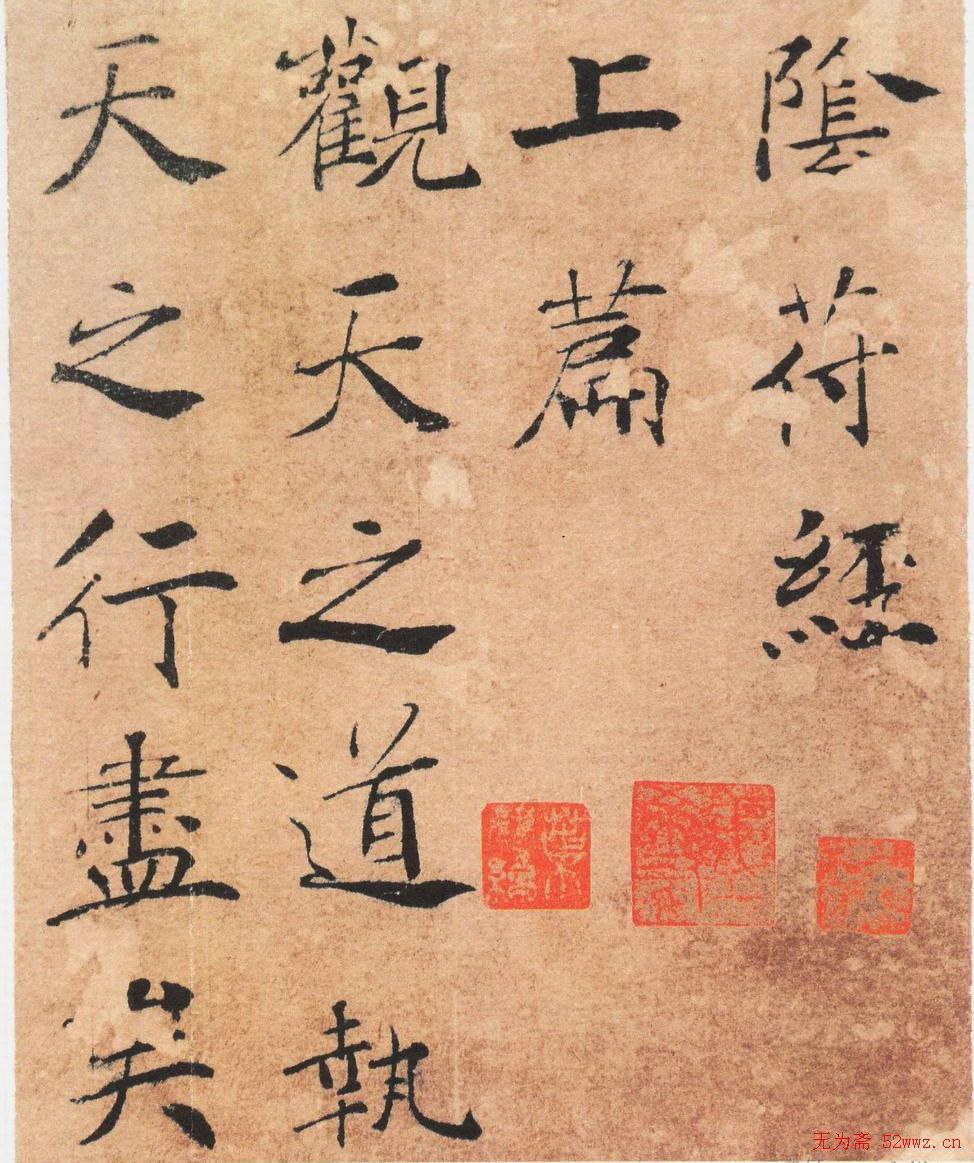 陰苻經
上萹
觀天之道執
天之行盡矣
无为斋 52wwz.cn